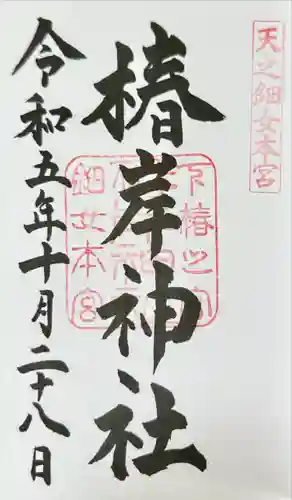 天之鈿女本宮
椿岸神社
令和五年十月二十八日
下椿之宮
鈿女本宮